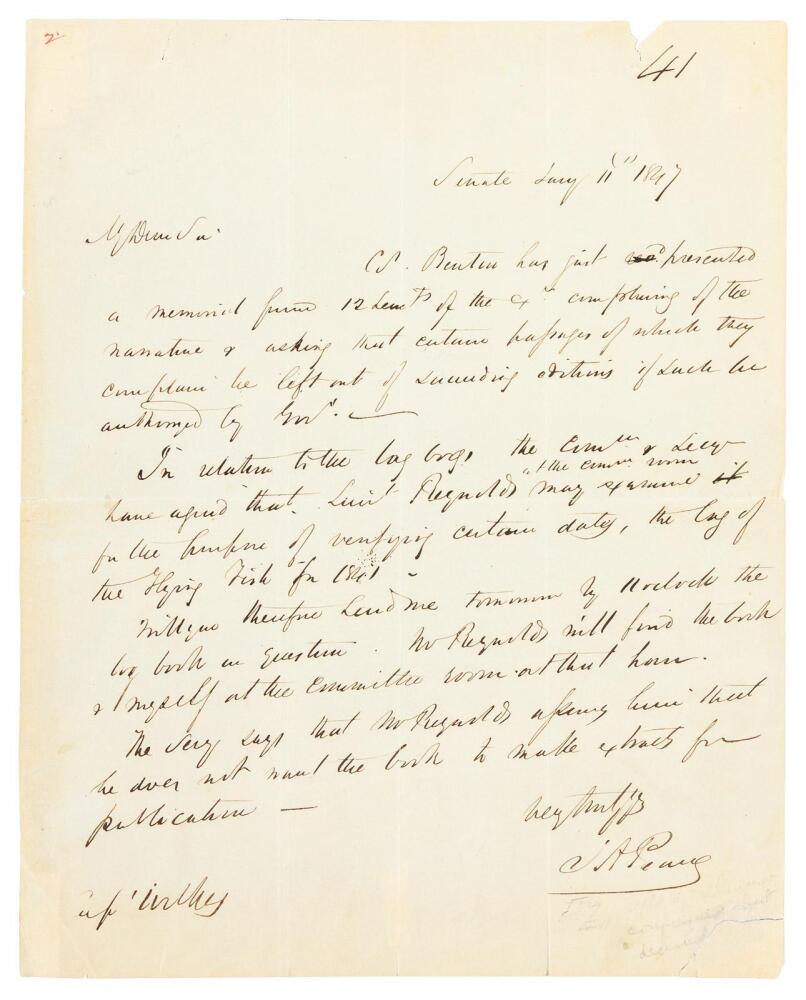 2
41
Senate Jany 11th 1847
My Dear Sir
Col. Benton has just presented
a memorial from 12 Lieuts of the Exn complaining of the
narrative & asking that certain passages of which they
complain be left out of succeeding editions if such be
authorized by Govt. —
In relation to the log books, the Comee & Secy
have agreed that Lieut Reynolds "at the comee room" may examine it
for the purpose of verifying certain dates, the log of
the Flying Fish for 1841 -
Will you therefore send me tomorrow by 11 oclock the
log book in question. Mr Reynolds will find the book
& myself at the Committee room at that hour.
The Secy says that Mr Reynolds assures him that
he does not want the book to make extracts for
publication —
Very truly yrs
J A Pearce
Capt Wilkes